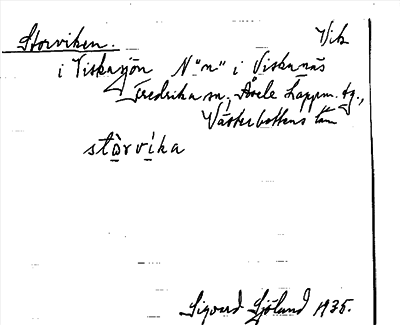 Storviken. Vik
i Viskasjön N"n" i Viskanäs
Fredrika sn, Åsele Lappm. tg.,
Västerbottens län
stòrvíka
Sigvard Sjölund 1935.